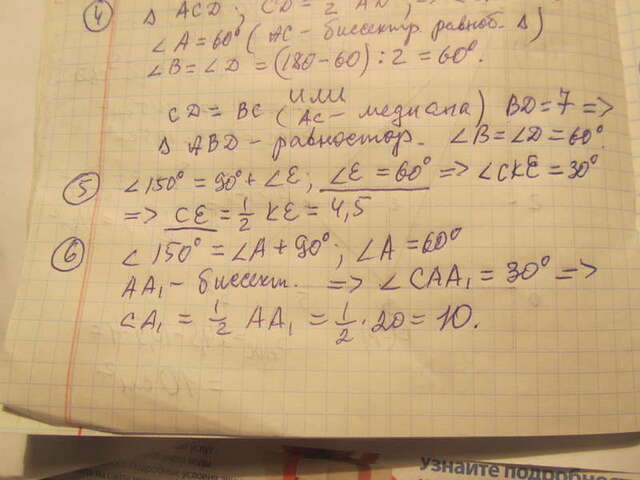 4 Δ ACD; CD = 1/2 AD;
∠A = 60° (AC - биссектр. равноб. Δ)
∠B = ∠D = (180 - 60) : 2 = 60°.
или
CD = BC (AC - медиана) BD = 7 =>
Δ ABD - равностор. ∠B = ∠D = 60°.
5 ∠150° = 90° + ∠E; ∠E = 60° => ∠CKE = 30°
=> CE = 1/2 KE = 4,5
6 ∠150° = ∠A + 90°; ∠A = 60°
AA₁ - биссект. => ∠CAA₁ = 30° =>
CA₁ = 1/2 AA₁ = 1/2 · 20 = 10.
Узнайте подробнос